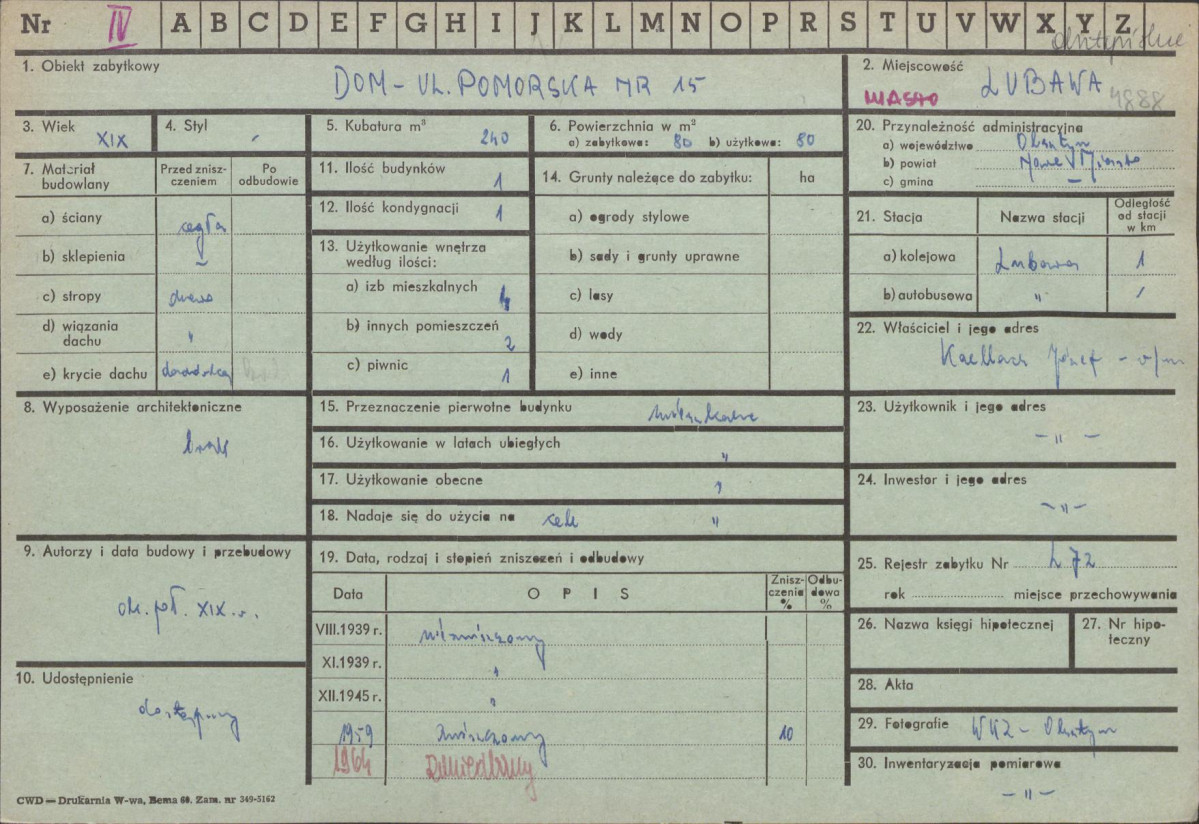 Nr IV A B C D E F G H I J K L M N O P R S T U V W X Y Z
1. Obiekt zabytkowy
DOM - UL. POMORSKA NR 15
2. Miejscowość
MIASTO ŁUBAWA 4888
3. Wiek
XIX
4. Styl
5. Kubatura m³
240
6. Powierzchnia w m²
a) zabytkowa: 80 b) użytkowa: 80
7. Materiał budowlany
Przed znisz-
czeniem
Po
odbudowie
a) ściany cegła
b) sklepienia –
c) stropy drewno
d) wiązania
dachu "
e) krycie dachu dachówka
8. Wyposażenie architektoniczne
brak
9. Autorzy i data budowy i przebudowy
ok. poł. XIX w.
10. Udostępnienie
dostępny
11. Ilość budynków
1
12. Ilość kondygnacji
1
13. Użytkowanie wnętrza
według ilości:
a) izb mieszkalnych
b) innych pomieszczeń
2
c) piwnic
1
14. Grunty należące do zabytku: ha
a) ogrody stylowe
b) sady i grunty uprawne
c) lasy
d) wody
e) inne
15. Przeznaczenie pierwotne budynku mieszkalne
16. Użytkowanie w latach ubiegłych "
17. Użytkowanie obecne "
18. Nadaje się do użycia na cele "
19. Data, rodzaj i stopień zniszczeń i odbudowy
Data
OPIS
Znisz-
czenia
%
Odbu-
dowa
%
VIII.1939 r. niezniszczony
XI.1939 r. "
XII.1945 r. "
1959 zniszczony 10
1964 zaniedbany
20. Przynależność administracyjna
a) województwo Olsztyn
b) powiat Nowe Miasto
c) gmina –
21. Stacja
Nazwa stacji
Odległość
od stacji
w km
a) kolejowa Lubawa 1
b) autobusowa " 1
22. Właściciel i jego adres
Józef - w/m
23. Użytkownik i jego adres
- " -
24. Inwestor i jego adres
- " -
25. Rejestr zabytku Nr L 72
rok miejsce przechowywania
26. Nazwa księgi hipotecznej
27. Nr hipo-
teczny
28. Akta
29. Fotografie WKZ - Olsztyn
30. Inwentaryzacja pomiarowa
- " -
CWD — Drukarnia W-wa, Bema 60. Zam. nr 349-5162